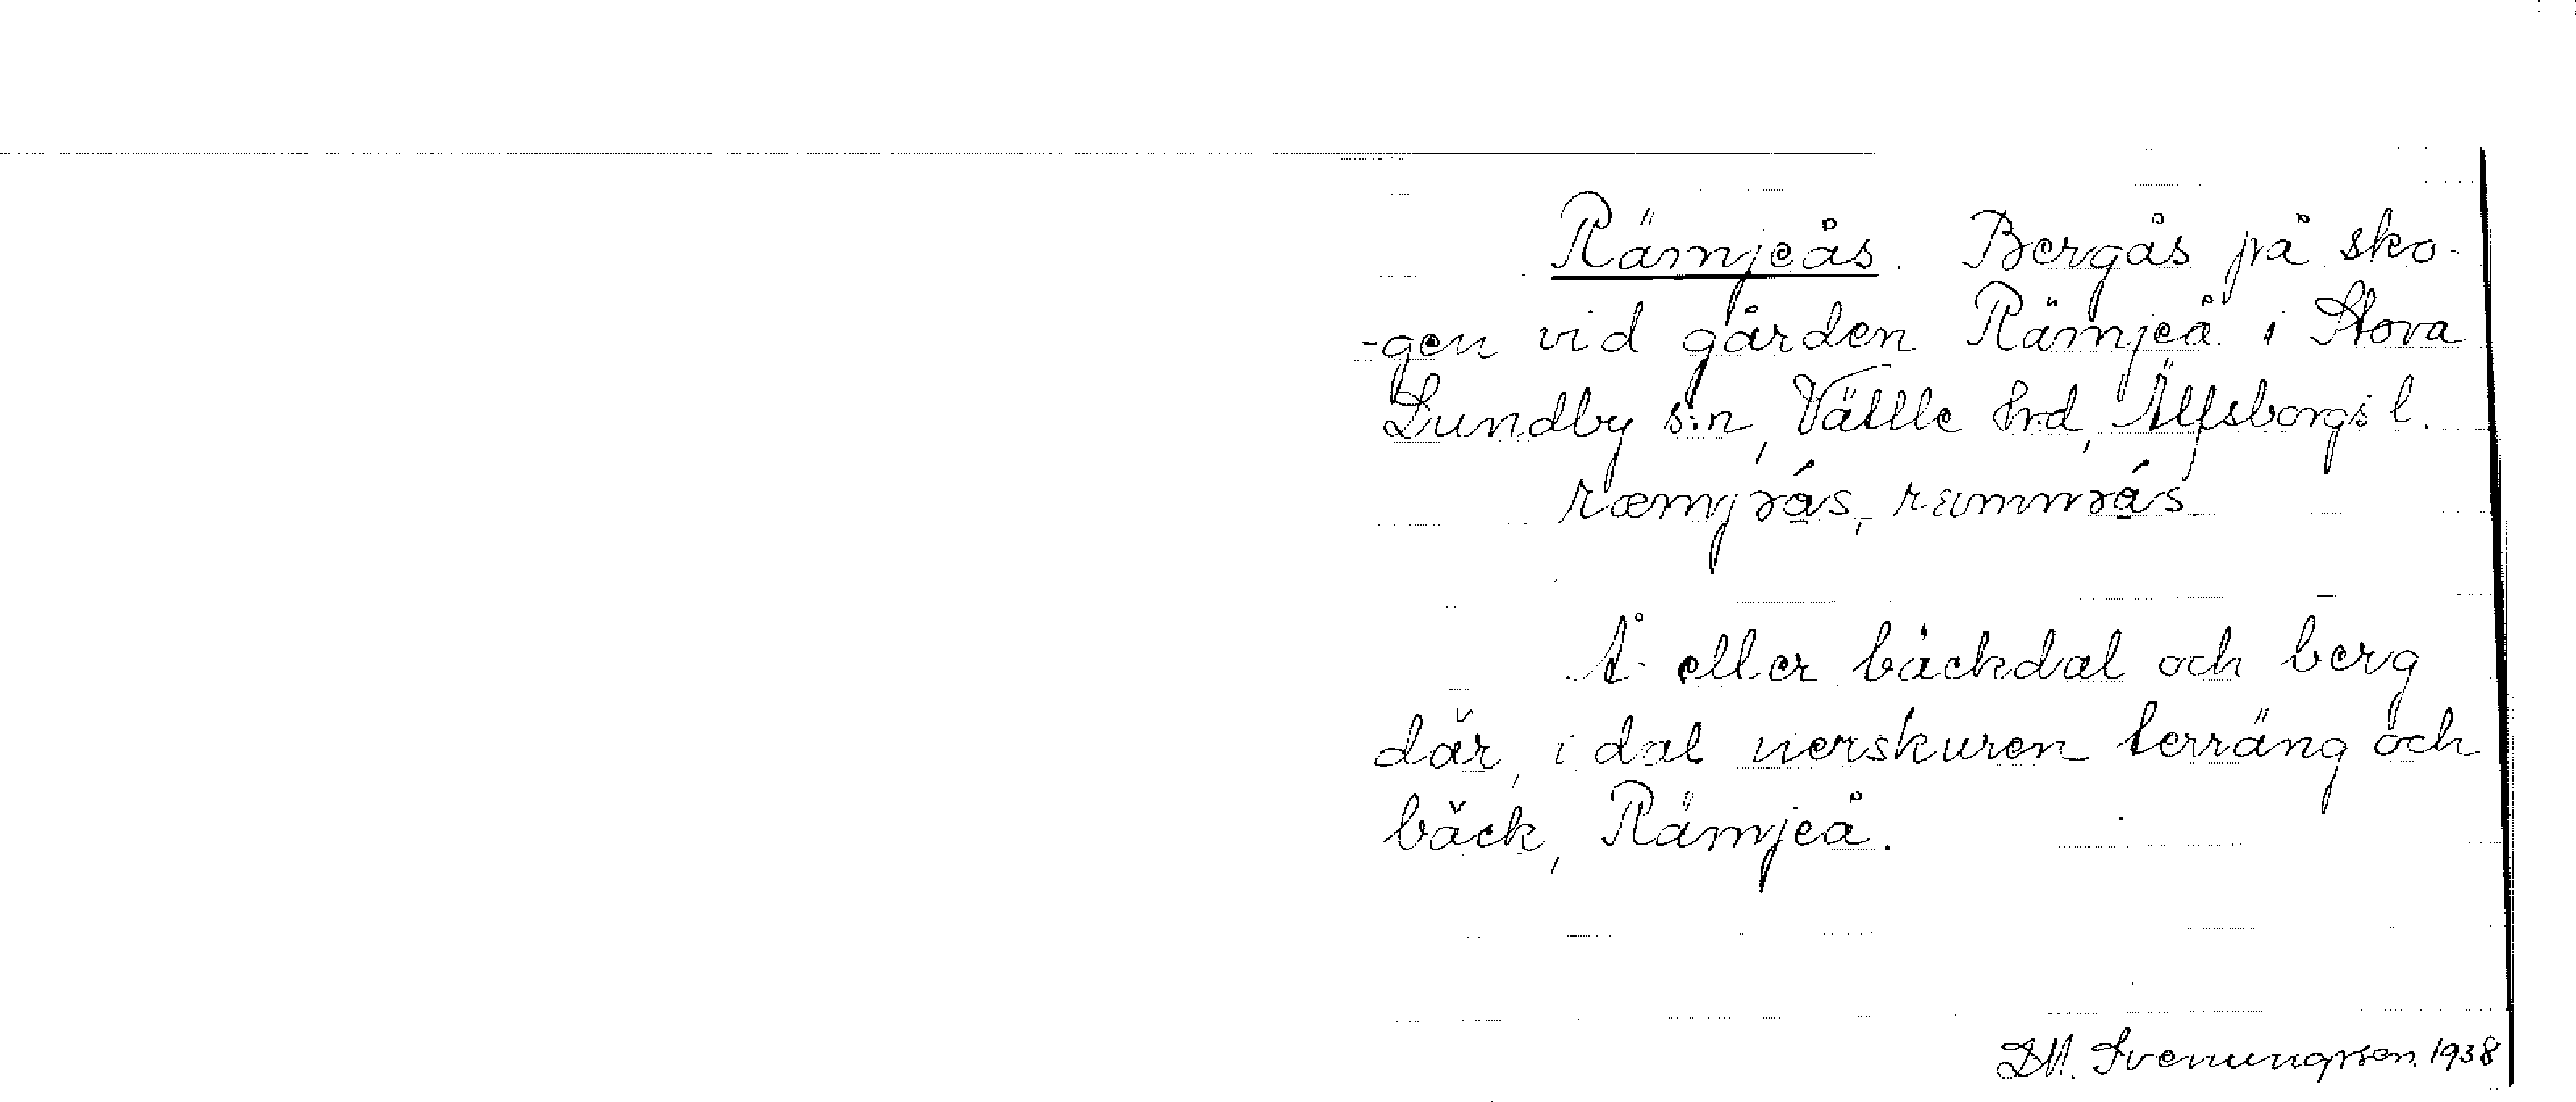 Rämjeås. Bergås på sko-
-gen vid gården Rämjeå i Stora
Lundby s:n, Vättle hrd, Älfsborgs l.
Å- eller bäckdal och berg
där, i dal nerskuren terräng och
bäck, Rämjeå.
D.M. Svenungsson. 1938